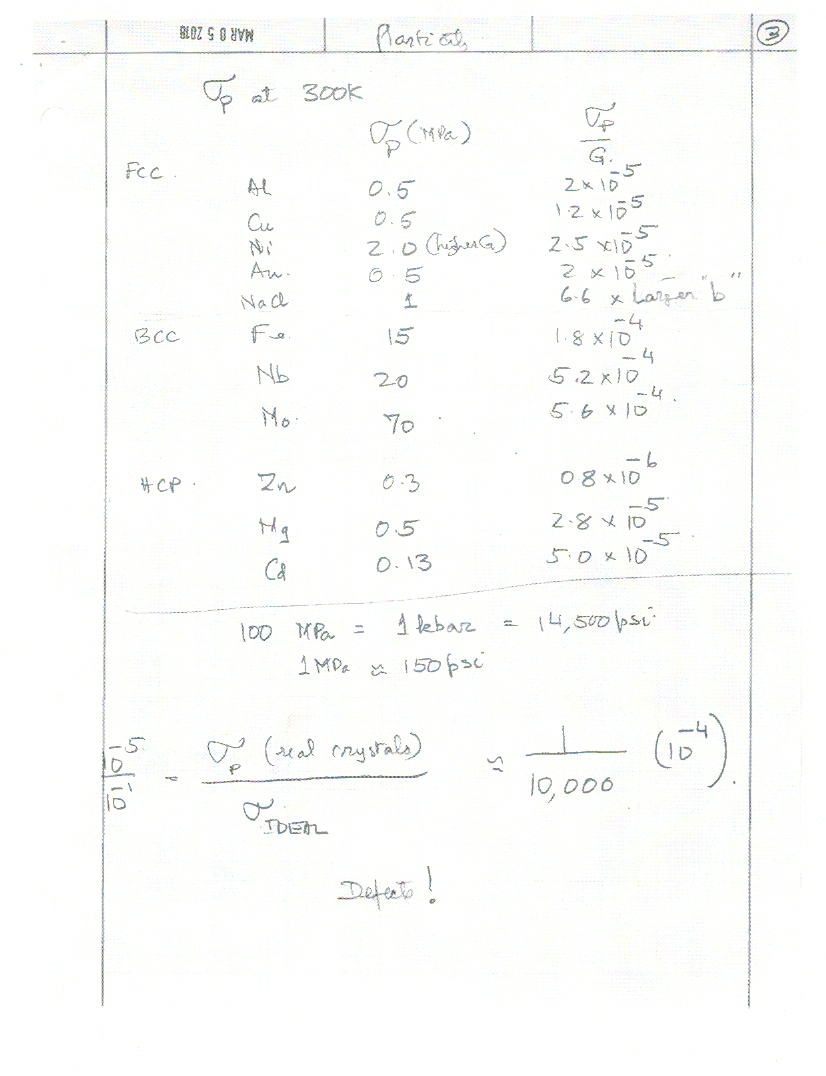 MAR 05 2018 Plasticity ③
σp at 300K
σp (MPa) σp/G.
FCC.
Al 0.5 2 × 10⁻⁵
Cu 0.5 1.2 × 10⁻⁵
Ni 2.0 (higher G) 2.5 × 10⁻⁵
Au. 0.5 2 × 10⁻⁵
NaCl 1 6.6 × Larger "b"
BCC Fe 15 1.8 × 10⁻⁴
Nb 20 5.2 × 10⁻⁴
Mo. 70 5.6 × 10⁻⁴.
HCP. Zn 0.3 0 8 × 10⁻⁶
Mg 0.5 2.8 × 10⁻⁵
Cd 0.13 5.0 × 10⁻⁵
100 MPa = 1 kbar = 14,500 psi
1 MPa ≈ 150 psi
10⁻⁵/10⁻¹ = σp (real crystals)/σIDEAL ≈ 1/10,000 (10⁻⁴).
Defects!